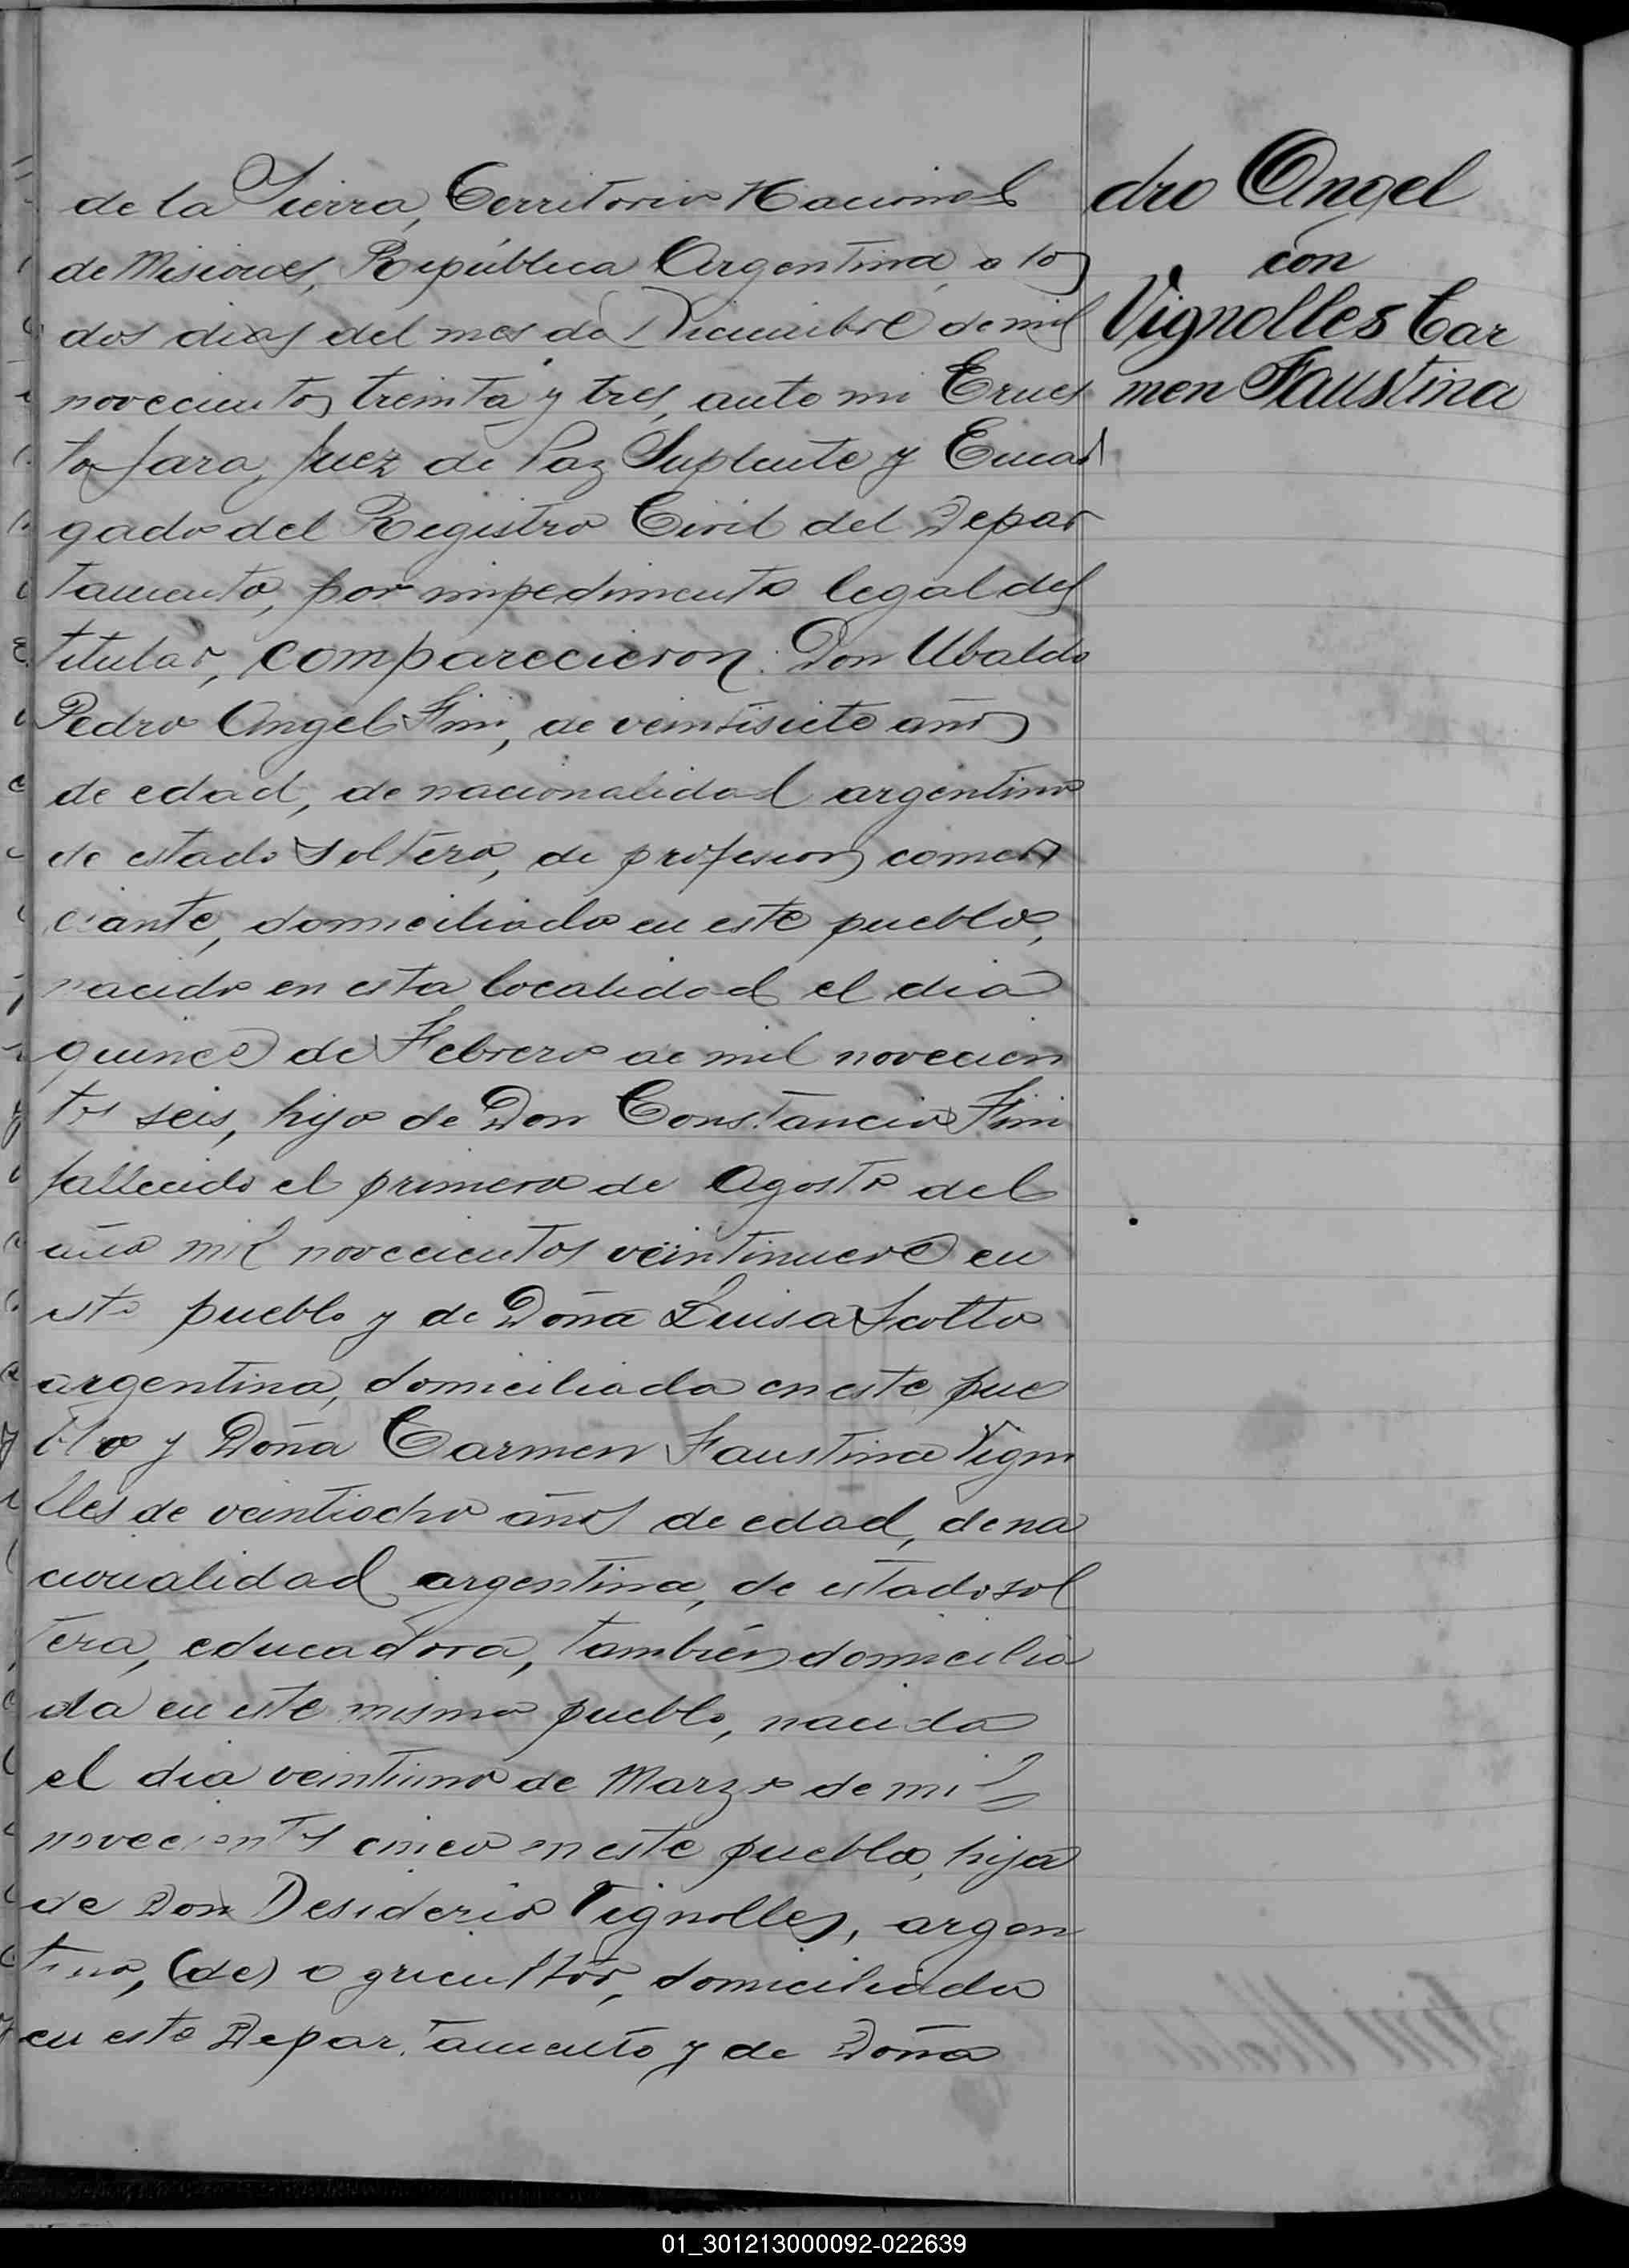 de la Sierra, Territorio Nacional
de Misiones, República Argentina, a los
dos dias del mes de Diciembre de mil
novecientos treinta y tres, ante mi Ernes
to Jara, Juez de Paz Suplente y Encar
gado del Registro Civil del Depar
tamento, por impedimento legal del
titular, comparecieron: Don Ubaldo
Pedro Angel Fini, de veintisiete años
de edad, de nacionalidad argentino
de estado soltero, de profesion comer
ciante, domiciliado en este pueblo,
nacido en esta localidad el dia
quince de Febrero de mil novecien
tos seis, hijo de Don Constancio Fini
fallecido el primero de Agosto del
año mil novecientos veintinueve en
este pueblo y de Doña Luisa Scotto
argentina, domiciliada en este pue
blo y Doña Carmen Faustina Vigno
lles de veintiocho años de edad, de na
cionalidad argentina, de estado sol
tera, educadora, también domicilia
da en este mismo pueblo, nacida
el dia veintiuno de Marzo de mil
novecientos cinco en este pueblo, hija
de Don Desiderio Vignolles, argen
tino, (de) agricultor, domiciliado
en este Departamento y de Doña
dro Angel
con
Vignolles Car
men Faustina
01_301213000092-022639